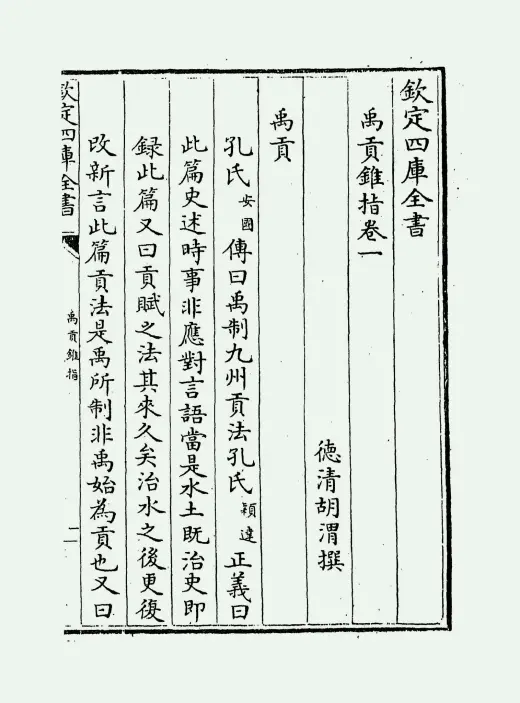 欽定四庫全書
禹貢錐指卷一
德清胡渭撰
禹貢
孔氏安國傳曰禹制九州貢法孔氏穎達正義曰
此篇史述時事非應對言語當是水土既治史即
録此篇又曰貢賦之法其來久矣治水之後更復
改新言此篇貢法是禹所制非禹始為貢也又曰
欽定四庫全書
禹貢錐指